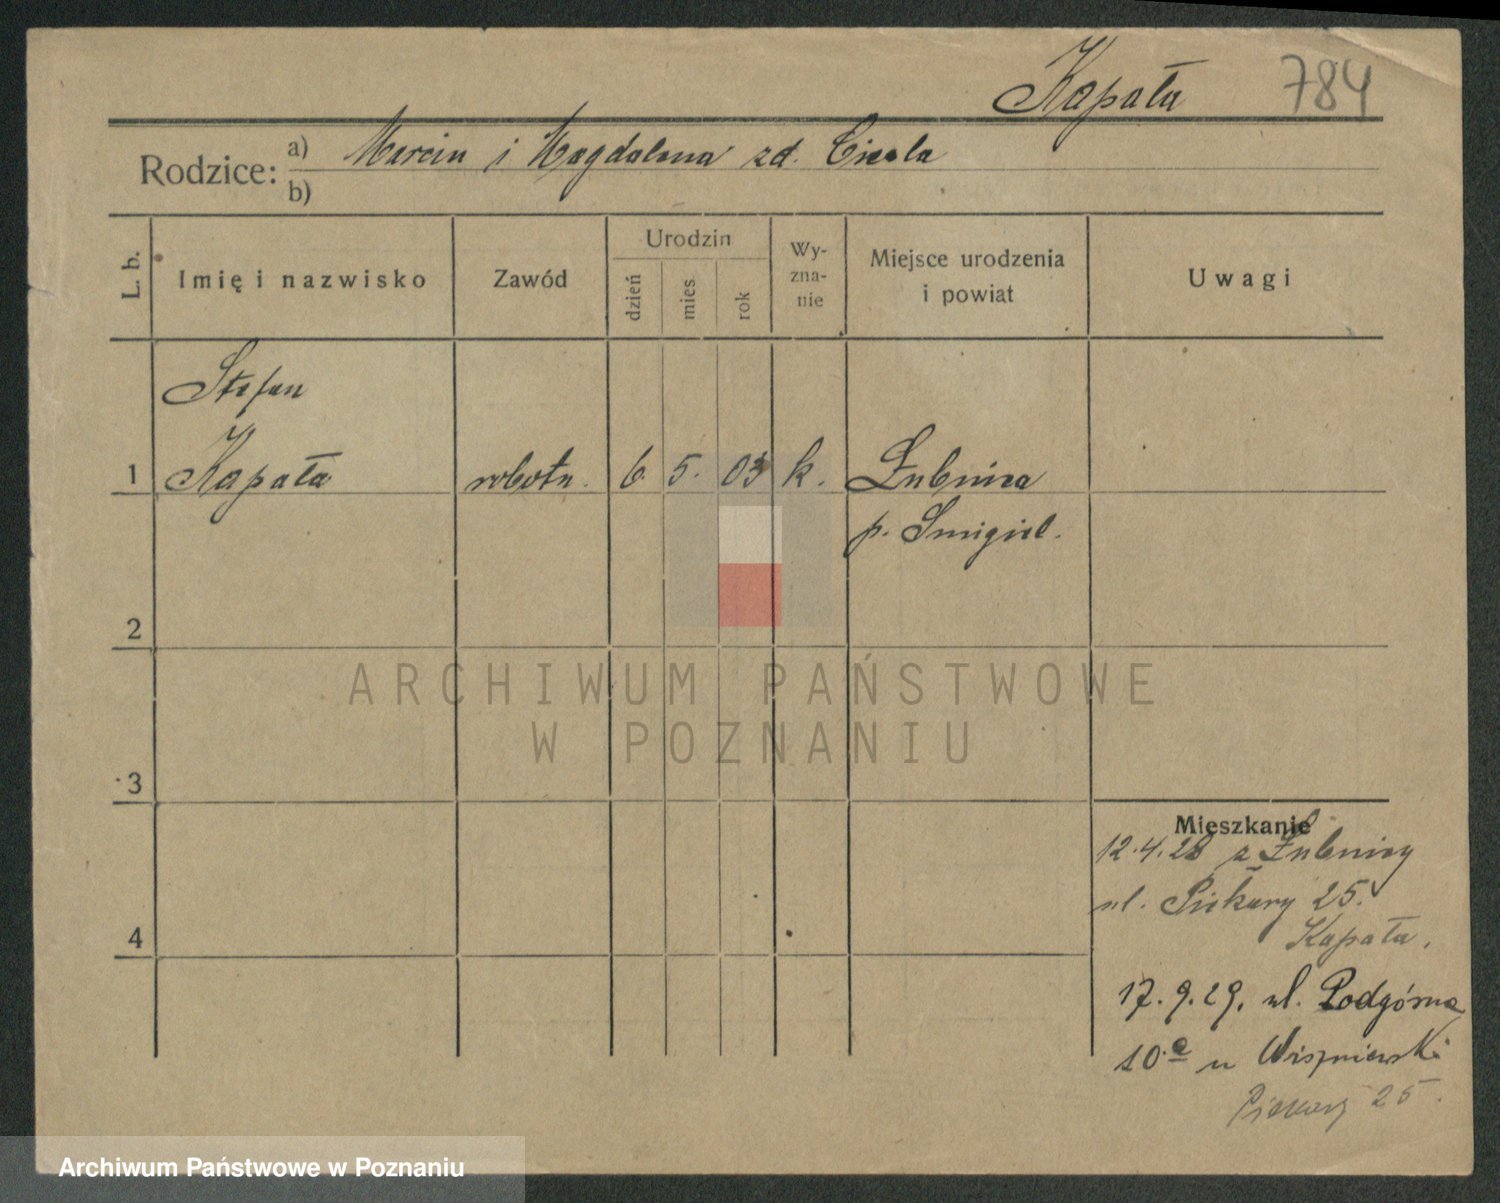 Kapała 784
Rodzice: a) Marcin i Magdalena zd. Ciesla
b)
L. b.
Imię i nazwisko
Zawód
Urodzin
dzień
mies.
rok
Wy-
zna-
nie
Miejsce urodzenia
i powiat
Uwagi
Stefan
1 Kapała robotn. 6. 5. 03 k. Żubnica
p. Smigiel.
2
3
4
ARCHIWUM PAŃSTWOWE
W POZNANIU
Mieszkanie
12.4.28 z Żubnicy
ul. Piekary 25.
Kapała.
17.9.29. ul. Podgórna
10a u Wiszniewski
Piekary 25.
Archiwum Państwowe w Poznaniu